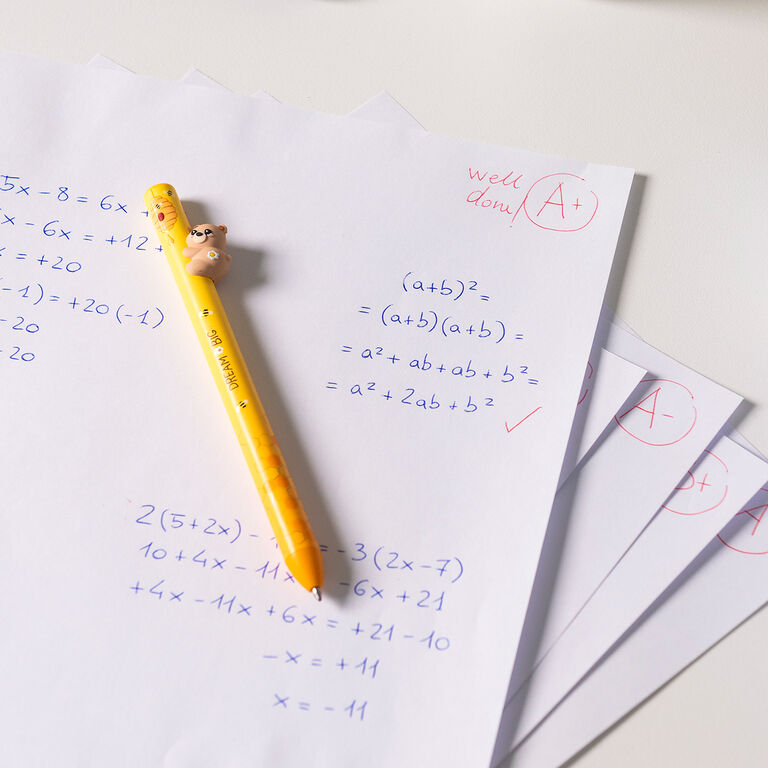 5x - 8 = 6x +
x - 6x = +12 +
x = +20
(-1) = +20 (-1)
-20
-20
well done! A+
(a+b)² =
= (a+b)(a+b) =
= a² + ab + ab + b² =
= a² + 2ab + b²
DREAM BIG
2(5+2x) - = -3(2x-7)
10 + 4x - 11x -6x + 21
+4x - 11x + 6x = +21 - 10
-x = +11
x = -11
A-
+
A